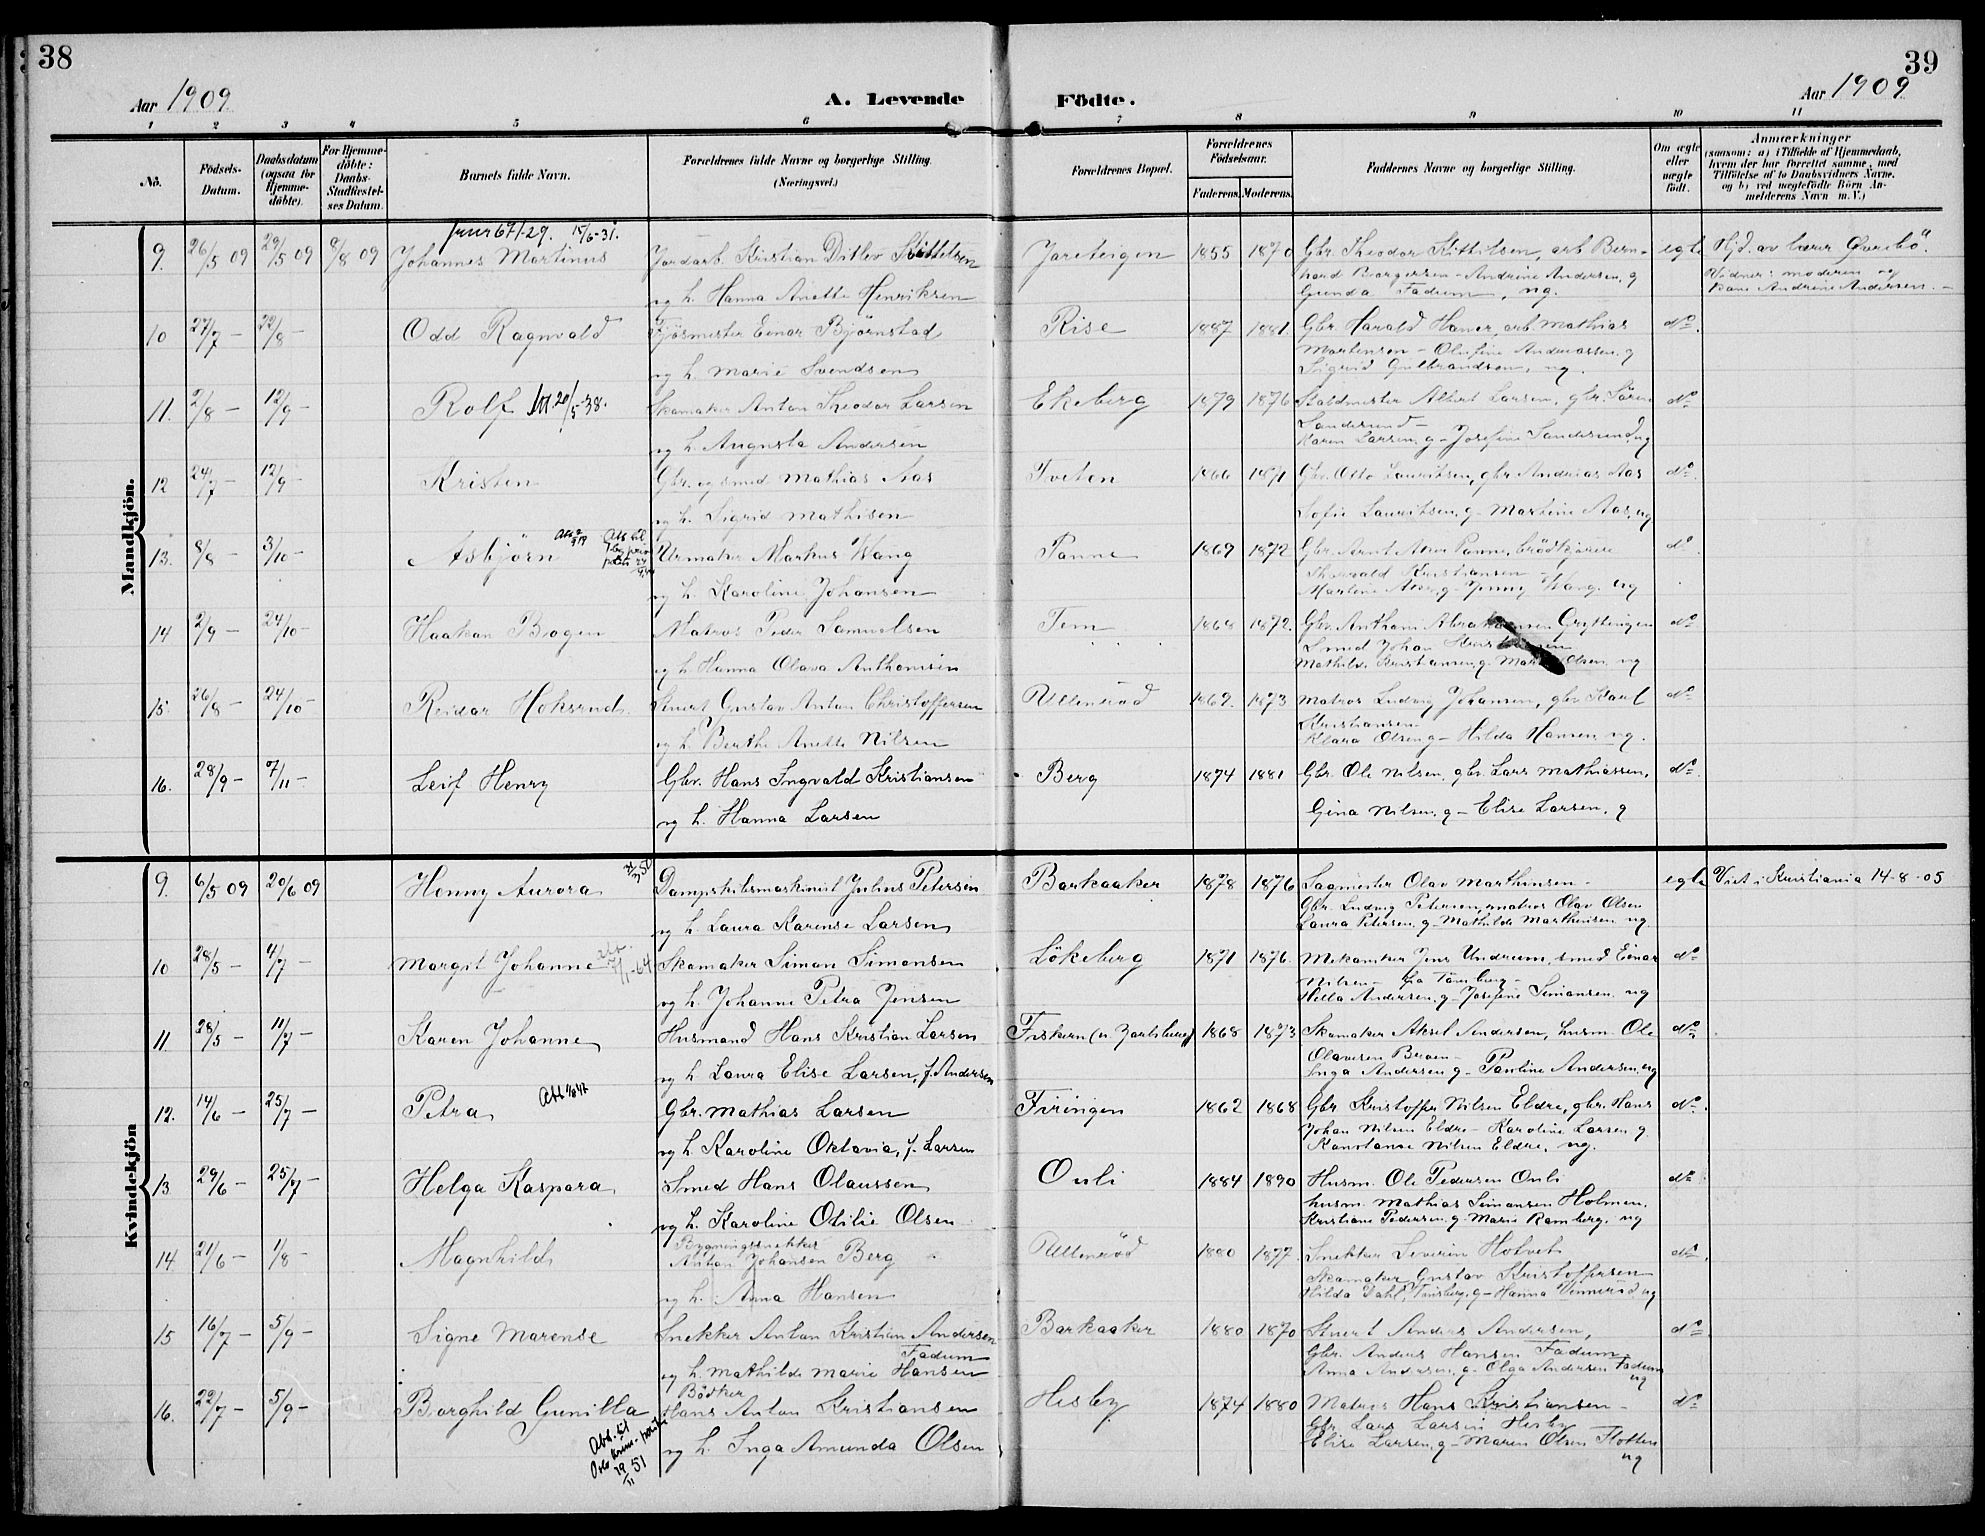 38
39
Aar 1909
A. Levende
Födte.
Aar 1909
1 2 3 4 5 6 7 8 9 10 11
No. Födsels-Datum. Daabsdatum (ogsaa for Hjemme-döbte). For Hjemme-döbte: Daabs-Stadfæstel-ses Datum. Barnets fulde Navn. Forældrenes fulde Navne og borgerlige Stilling. (Næringsvei.) Forældrenes Bopæl. Forældrenes Födselsaar. Faderens. Moderens. Faddernes Navne og borgerlige Stilling. Om ægte eller uægte födt. Anmærkninger (saasom: a) i Tilfælde af Hjemmedaab, hvem der har forrettet samme, med Tilföielse af to Daabsvidners Navne, og b) ved uægtefödte Börn An-melderens Navn m. V.)
Mandkjön.
15/6-31.
9. 26/5 09 29/5 09 8/8 09 Johannes Martinus Jordarb. Kristian Ditlev Kittelsen Jareteigen 1855 1870 Gbr. Theodor Kittilsen, arb. Bern- egte Hjd. av lærer Øvrebö.
og h. Hanna Anette Henriksen hard Borgersen - Andrine Andersen, g Vidner: moderen og
Gunda Fadum, ug. kone Andrine Andersen. -
10 27/7 - 22/8 - Odd Ragnvald Fjösmester Einar Björnstad Rise 1887 1881 Gbr. Harald Haner, arb. Mathias do.
og h. Marie Svendsen Martensen - Olufine Andreassen, g
Sigrid Gulbrandsen, ug.
11. 2/8 - 12/9 - Rolf 20/5-38. Skomaker Anton Theodor Larsen Ekeberg 1879 1876 Staldmester Albert Larsen, gbr. Sören do
og h. Augusta Andersen Sandersund -
Karen Larsen, g - Josefine Sandersund, ug
12 24/7 - 12/9 - Kristen Gbr. og smed Mathias Aas Tveten 1866 1871 Gbr. Otto Lauritsen, gbr Andreas Aas do.
og h. Sigrid Mathisen Sofie Lauritsen, g - Martine Aas, ug
13. 8/8 - 3/10 - Asbjörn Urmaker Markus Wang Panne 1869 1872 Gbr. Arnt Panne, brödkjörer do
og h. Karoline Johansen Thorvald Kristiansen -
Martine g - Jenny Wang, ug
14 2/9 - 24/10 - Haakon Bogen Matros Peder Samuelsen Tem 1868 1872. Gbr. Anthoni Grytteigen do
og h Hanna Olava Anthonisen Smed Johan
Mathilde Kristiansen, g - Olsen, ug
15 26/8 - 24/10 - Reidar Hoksrud Stuert Gustav Anton Christoffersen Ullenröd 1869. 1873 Matros Ludvig Johansen, gbr Karl do.
og h. Berthe Anette Nilsen Kristiansen -
Klara Olsen g - Hilda Hansen, ug.
16. 28/9 - 7/11 - Leif Henry Gbr. Hans Ingvald Kristiansen Berg 1874 1881 Gbr. Ole Nilsen, gbr. Lars Mathiassen, do.
og h. Hanna Larsen Gina Nilsen, g - Elise Larsen, g
Kvindekjön
9. 6/5 09 20/6 09 Henny Aurora Dampskibsmaskinist Julius Petersen Barkaaker 1878 1876 Sagmester Olav Marthinsen - egte Viet i Kristiania 14-8-05
og h. Laura Karense Larsen Gbr. Ludvig Petersen, matros Olav Olsen
Laura Petersen, g - Mathilde Marthinsen ug
10 28/5 - 4/7 - Margit Johanne Skomaker Simon Simonsen Lökeberg 1871 1876. Mekaniker Jens Undrum, smed Einar do
og h. Johanne Petra Jensen Nilsen -
Andersen, g - Josefine Simonsen, ug
11 28/5 - 11/7 - Karen Johanne Husmand Hans Kristian Larsen Fiskern (u Jarlsberg) 1868 1873 Skomaker Aksel Andersen, husm. Ole do
og h Laura Elise Larsen, f. Andersen Olavesen Broen -
Inga Andersen g - Pauline Andersen, ug
12. 14/6 - 25/7 - Petra Gbr. Mathias Larsen Firingen 1862 1868 Gbr Kristoffer Nilsen Eldre, gbr. Hans do.
og h. Karoline Oktavia, f. Larsen Johan Nilsen Eldre - Karoline Larsen g
Konstanse Nilsen Eldre, ug.
13 29/6 - 25/7 - Helga Kaspara Smed Hans Olaussen Onli 1884 1890 Husm. Ole Pedersen Onli do
og h. Karoline Otilie Olsen husm. Mathias Simonsen Holmen,
Kristiane Pedersen, g - Marie Ramberg, ug
14 21/6 - 1/8 - Magnhild Bygningssnekker
Anton Johansen Berg Ullenröd 1880 1877. Snekker Severin Holvet do.
og h. Anna Hansen Skomaker Gustav Kristoffersen
Hilda Dahl, Tönsberg, g - Hanna Vennerød ug
15 16/7 - 5/9 - Signe Marense Snekker Anton Kristian Andersen Barkaaker 1880 1870 Stuert Anders Andersen, do
Fadum Gbr. Anders Hansen Fadum -
og h. Mathilde Marie Hansen Anna Andersen, g - Olga Andersen Fadum ug
16. 22/7 - 5/9 - Borghild Gunilla Bödker
Hans Anton Kristiansen Hesby 1874 1880 Matros Hans Kristiansen - do
og h. Inga Amunda Olsen Gbr. Lars Larsen Hesby
Elise Larsen, g - Maren Olsen Flotten ug